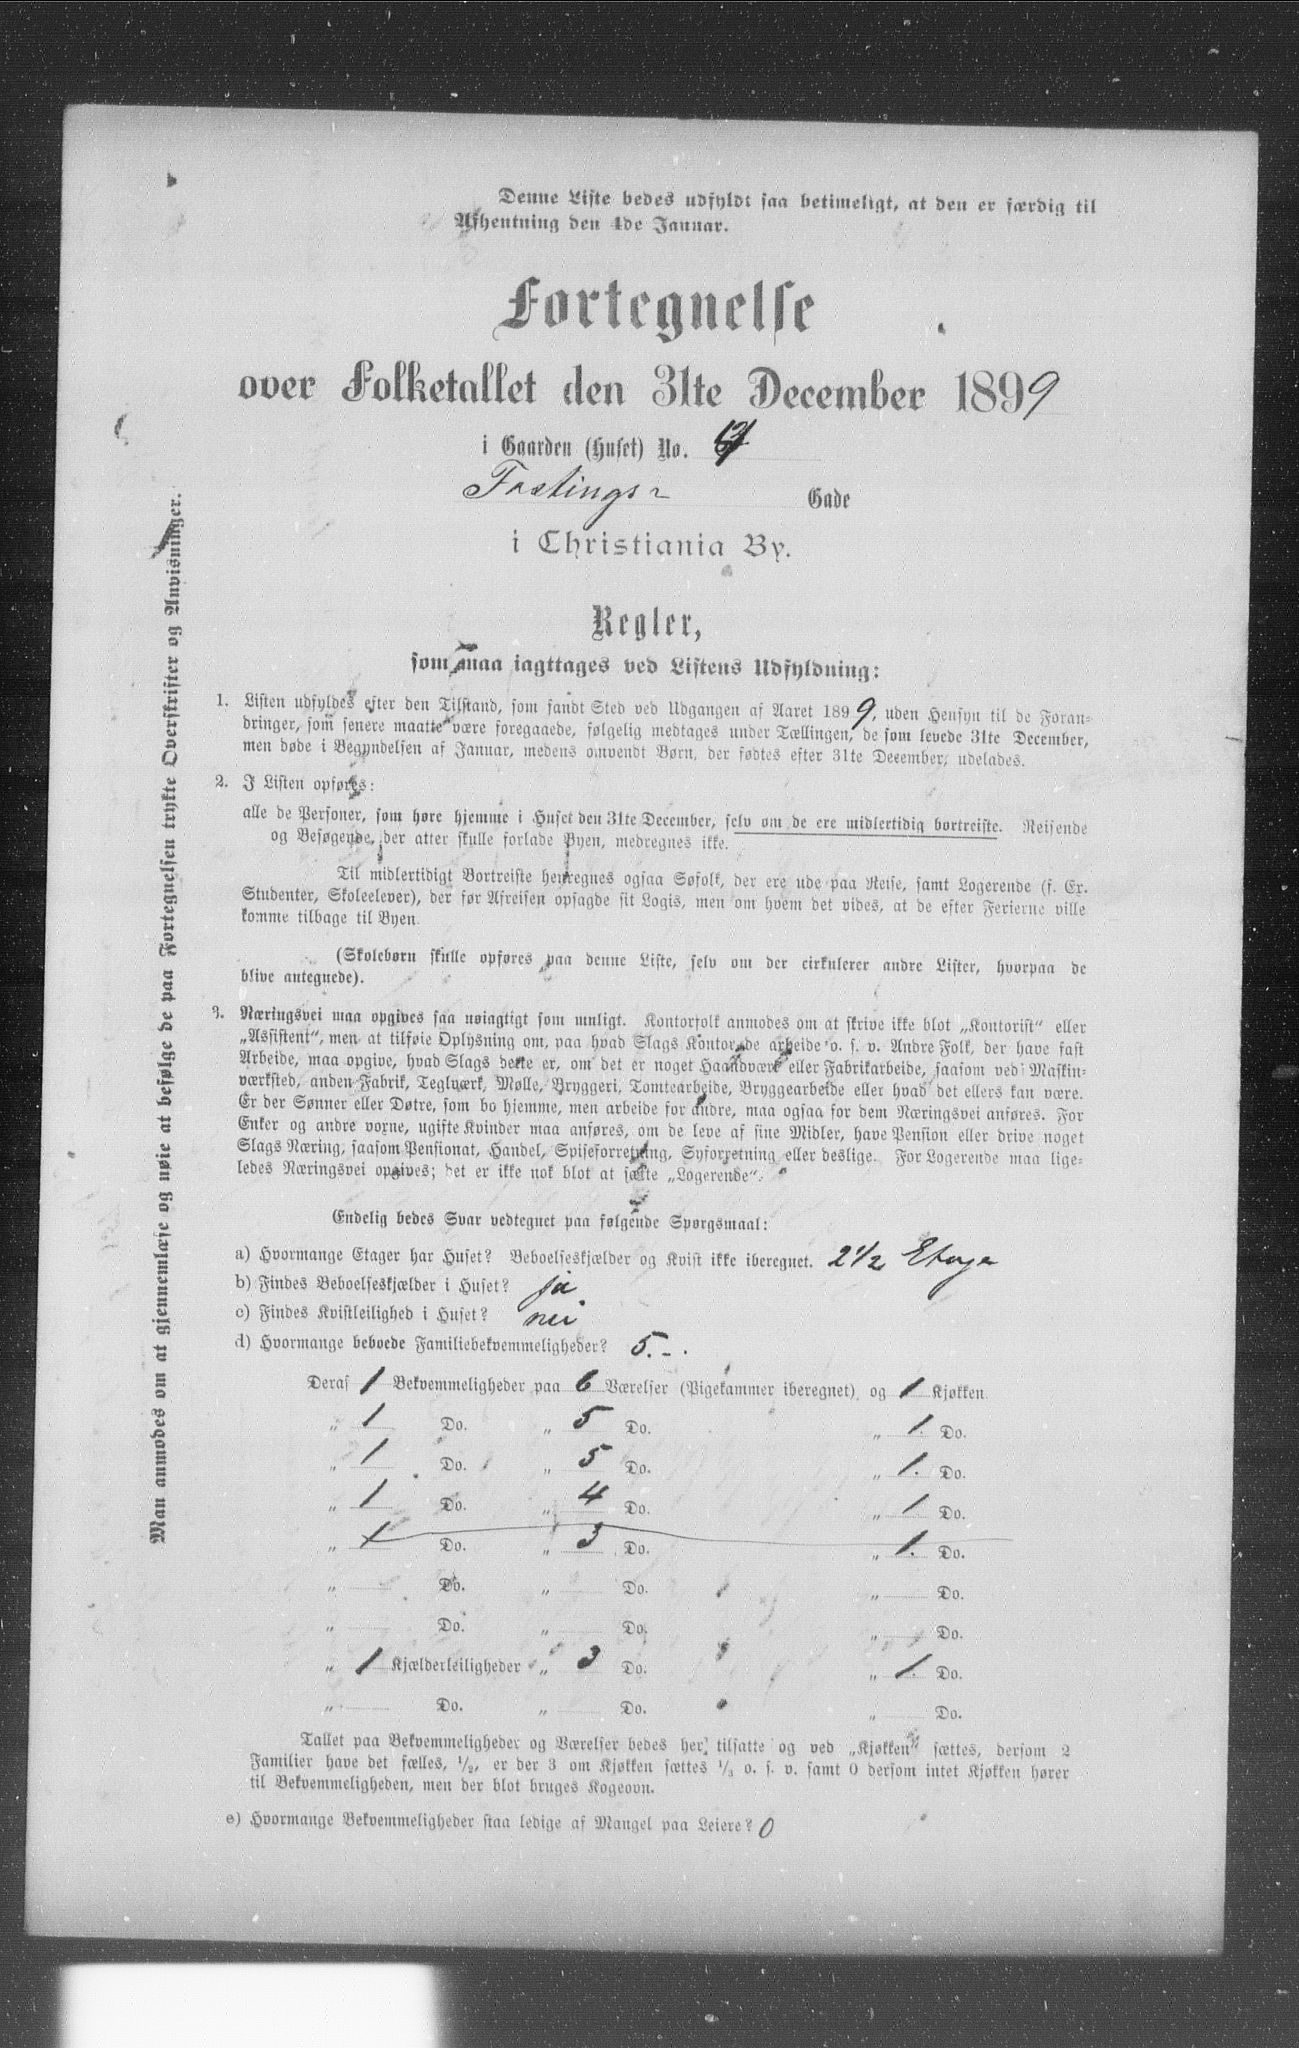 Denne Liste bedes udfyldt saa betimeligt, at den er færdig til
Afhentning den 4de Januar.
Fortegnelse
over Folketallet den 31te December 1899
i Gaarden (Huset) No.
Fastings- Gade
i Christiania By.
Regler,
som maa iagttages ved Listens Udfyldning:
1. Listen udfyldes efter den Tilstand, som fandt Sted ved Udgangen af Aaret 1899, uden Hensyn til de Foran-
dringer, som senere maatte være foregaaede, følgelig medtages under Tællingen, de som levede 31te December,
men døde i Begyndelsen af Januar, medens omvendt Børn, der fødtes efter 31te December, udelades.
2. I Listen opføres:
alle de Personer, som høre hjemme i Huset den 31te December, selv om de ere midlertidig bortreiste. Reisende
og Besøgende, der atter skulle forlade Byen, medregnes ikke.
Til midlertidigt Bortreiste henregnes ogsaa Søfolk, der ere ude paa Reise, samt Logerende (f. Ex.
Studenter, Skoleelever), der før Afreisen opsagde sit Logis, men om hvem det vides, at de efter Ferierne ville
komme tilbage til Byen.
(Skolebørn skulle opføres paa denne Liste, selv om der cirkulerer andre Lister, hvorpaa de
blive antegnede).
3. Næringsvei maa opgives saa nøiagtigt som muligt. Kontorfolk anmodes om at skrive ikke blot „Kontorist" eller
„Assistent", men at tilføie Oplysning om, paa hvad Slags Kontor de arbeide o. s. v. Andre Folk, der have fast
Arbeide, maa opgive, hvad Slags dette er, om det er noget Haandværk eller Fabrikarbeide, saasom ved Maskin-
værksted, anden Fabrik, Teglværk, Mølle, Bryggeri, Tomtearbeide, Bryggearbeide eller hvad det ellers kan være.
Er der Sønner eller Døtre, som bo hjemme, men arbeide for andre, maa ogsaa for dem Næringsvei anføres. For
Enker og andre voxne, ugifte Kvinder maa anføres, om de leve af sine Midler, have Pension eller drive noget
Slags Næring, saasom Pensionat, Handel, Spiseforretning, Syforretning eller deslige. For Logerende maa lige-
ledes Næringsvei opgives; det er ikke nok blot at sætte „Logerende".
Endelig bedes Svar vedtegnet paa følgende Spørgsmaal:
a) Hvormange Etager har Huset? Beboelseskjælder og Kvist ikke iberegnet. 2 1/2 Etage
b) Findes Beboelseskjælder i Huset? ja
c) Findes Kvistleilighed i Huset? nei
d) Hvormange beboede Familiebekvemmeligheder? 5.-.
Deraf 1 Bekvemmeligheder paa 6 Værelser (Pigekammer iberegnet) og 1 Kjøkken.
„ 1 Do. „ 5 Do. „ 1. Do.
„ 1 Do. „ 5 Do. „ 1. Do.
„ 1 Do. „ 4 Do. „ 1 Do.
„ 1 Do. „ 3 Do. „ 1. Do.
„ Do. „ Do. „ Do.
„ Do. „ Do. „ Do.
„ 1 Kjælderleiligheder „ 3 Do. „ 1. Do.
„ Do. „ Do. „ Do.
Tallet paa Bekvemmeligheder og Værelser bedes her tilsatte og ved „Kjøkken" sættes, dersom 2
Familier have det fælles, 1/2, er der 3 om Kjøkken sættes 1/3 o. s. v. samt 0 dersom intet Kjøkken hører
til Bekvemmeligheden, men der blot bruges Kogeovn.
e) Hvormange Bekvemmeligheder staa ledige af Mangel paa Leiere? 0
Man anmodes om at gjennemlæse og nøie at befølge de paa Fortegnelsen trykte Overskrifter og Anvisninger.